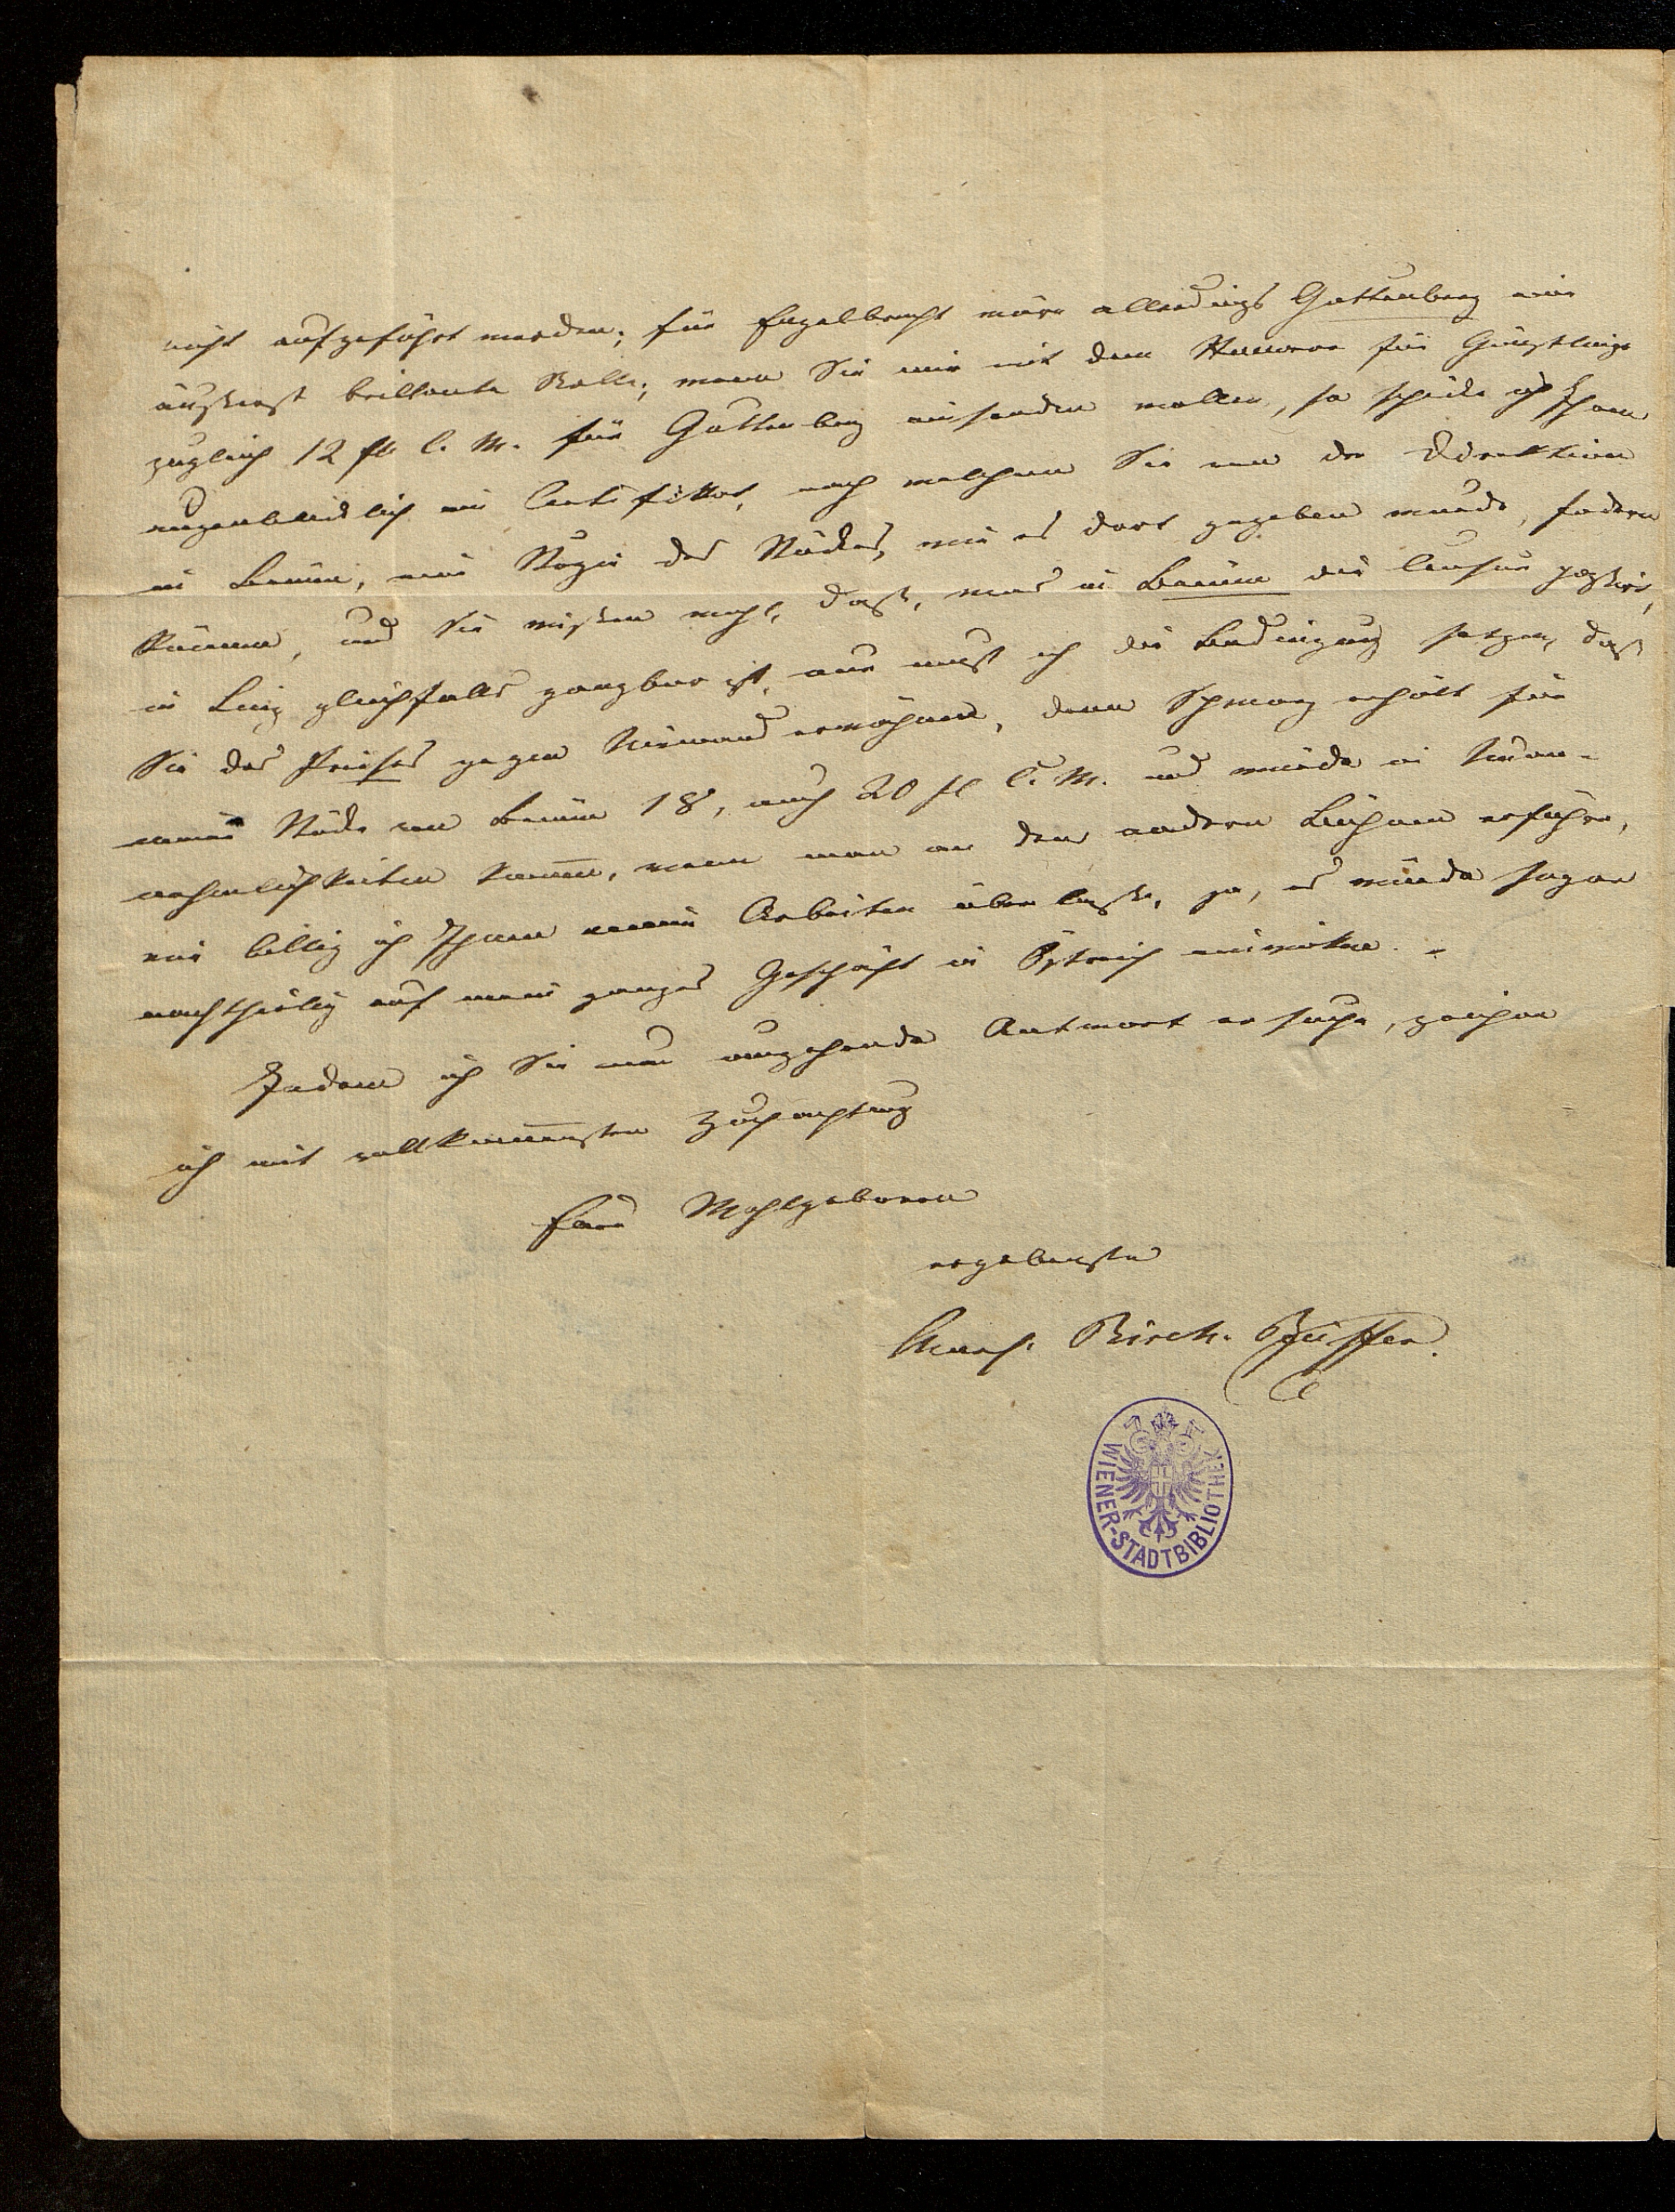 nicht aufgeführt werden; für Engelbrecht wäre allerdings Guttenberg eine
äusserst brillante Rolle; wenn Sie mir mit dem Honorar für Günstlinge
zugleich 12 fl C. M. für Guttenberg einsenden wollen, so schicke ich Ihnen
augenblicklich ein Certifikat, nach welchem Sie von der Direktion
in Brünn, eine Kopie des Stückes, wie es dort gegeben wurde, fodern
können, und Sie wissen wohl, dass, was in Brünn die Censur passirt,
in Linz gleichfalls gangbar ist, nur muß ich die Bedingung setzen, daß
Sie des Preises gegen Niemand erwähnen, denn Schmarz erhält für
meine Stücke von Brünn 18, auch 20 fl C. M. und würde in Unan-
nehmlichkeiten kommen, wenn man an den andern Bühnen erführe,
wie billig ich Ihnen meine Arbeiten überlasse, ja, es würde sogar
nachtheilig auf mein ganzes Geschäft in Östreich einwirken. -
Indem ich Sie um umgehende Antwort ersuche, zeichne
ich mit vollkommenster Hochachtung
Euer Wohlgeboren
ergebenste
Charl. Birch-Pfeiffer.
WIENER-STADTBIBLIOTHEK